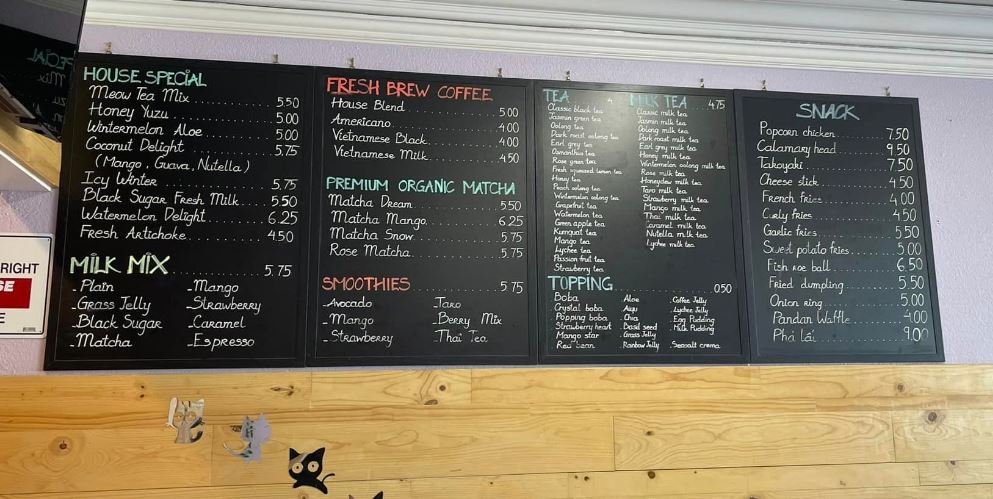 HOUSE SPECIAL
Meow Tea Mix 5.50
Honey Yuzu 5.00
Wintermelon Aloe 5.00
Coconut Delight 5.75
(Mango, Guava, Nutella)
Icy Winter 5.75
Black Sugar Fresh Milk 5.50
Watermelon Delight 6.25
Fresh Artichoke 4.50
MILK MIX 5.75
- Plain
- Grass Jelly
- Black Sugar
- Matcha
- Mango
- Strawberry
- Caramel
- Espresso
FRESH BREW COFFEE
House Blend 5.00
Americano 4.00
Vietnamese Black 4.00
Vietnamese Milk 4.50
PREMIUM ORGANIC MATCHA
Matcha Dream 5.50
Matcha Mango 6.25
Matcha Snow 5.75
Rose Matcha 5.75
SMOOTHIES 5.75
- Avocado
- Mango
- Strawberry
- Taro
- Berry Mix
- Thai Tea
TEA 4
Classic black tea
Jasmin green tea
Oolong tea
Dark roast oolong tea
Earl grey tea
Osmanthus tea
Rose green tea
Fresh squeezed lemon tea
Honey tea
Peach oolong tea
Wintermelon oolong tea
Grapefruit tea
Watermelon tea
Green apple tea
Kumquat tea
Mango tea
Lychee tea
Passion fruit tea
Strawberry tea
MILK TEA 4.75
Classic milk tea
Jasmin milk tea
Oolong milk tea
Dark roast milk tea
Earl grey milk tea
Honey milk tea
Wintermelon oolong milk tea
Rose milk tea
Honeydew milk tea
Taro milk tea
Strawberry milk tea
Mango milk tea
Thai milk tea
Caramel milk tea
Nutella milk tea
Lychee milk tea
TOPPING 0.50
Boba
Crystal boba
Popping boba
Strawberry heart
Mango star
Red bean
Aloe
Aiyu
Chia
Basil seed
Grass Jelly
Rainbow Jelly
Coffee Jelly
Lychee Jelly
Egg Pudding
Milk Pudding
Seasalt crema
SNACK
Popcorn chicken 7.50
Calamary head 9.50
Takoyaki 7.50
Cheese stick 4.50
French fries 4.00
Curly fries 4.50
Garlic fries 5.50
Sweet potato fries 5.00
Fish roe ball 6.50
Fried dumpling 5.50
Onion ring 5.00
Pandan Waffle 4.00
Phá lấu 9.00
RIGHT
SE
E